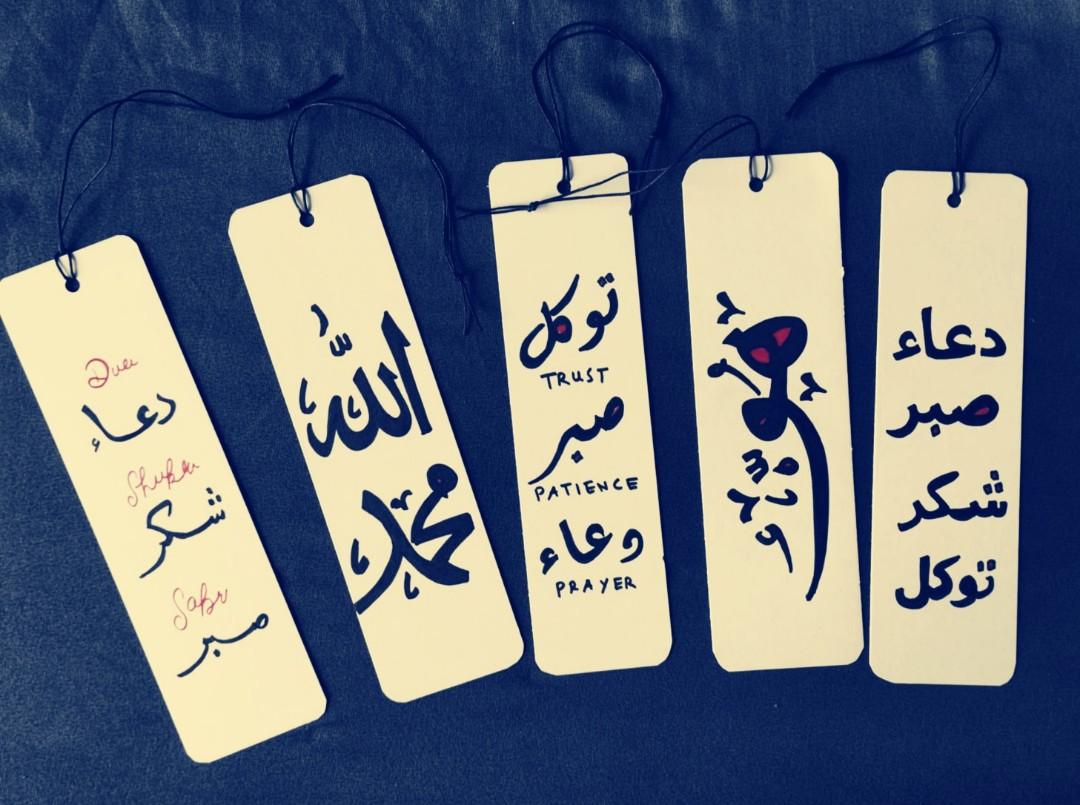 Dua
دعاء
Shukr
شكر
Sabr
صبر
الله
محمد
توكل
TRUST
صبر
PATIENCE
دعاء
PRAYER
دعاء
صبر
شكر
توكل